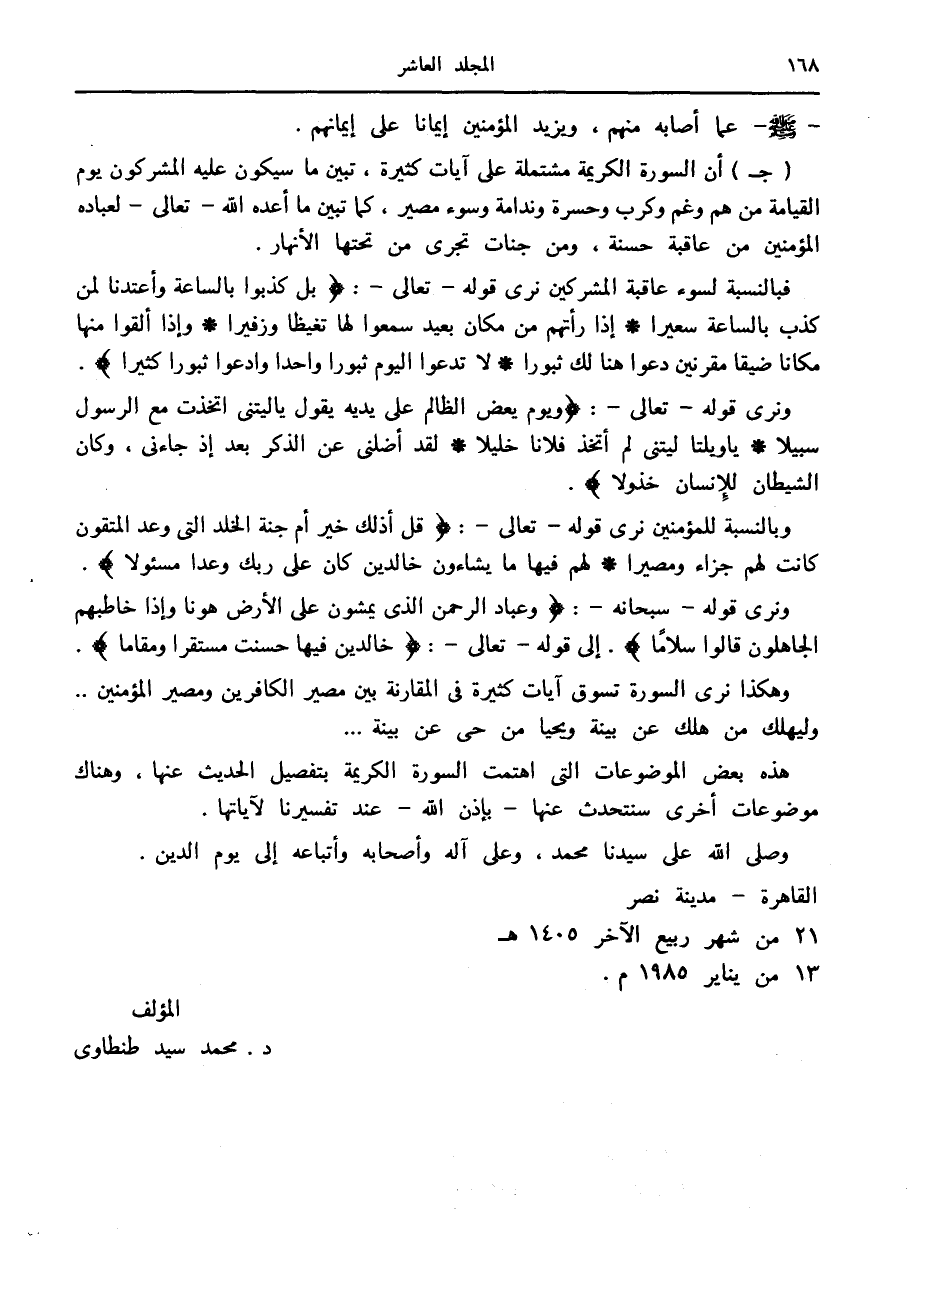 ١٦٨ المجلد العاشر
- ﷺ- عما أصابه منهم ، ويزيد المؤمنين إيمانا على إيمانهم .
( جـ ) أن السورة الكريمة مشتملة على آيات كثيرة ، تبين ما سيكون عليه المشركون يوم
القيامة من هم وغم وكرب وحسرة وندامة وسوء مصير ، كما تبين ما أعده الله - تعالى - لعباده
المؤمنين من عاقبة حسنة ، ومن جنات تجرى من تحتها الأنهار .
فبالنسبة لسوء عاقبة المشركين نرى قوله - تعالى - : ﴿ بل كذبوا بالساعة وأعتدنا لمن
كذب بالساعة سعيرا * إذا رأتهم من مكان بعيد سمعوا لها تغيظا وزفيرا * وإذا ألقوا منها
مكانا ضيقا مقرنين دعوا هنا لك ثبورا * لا تدعوا اليوم ثبورا واحدا وادعوا ثبورا كثيرا ﴾ .
ونرى قوله - تعالى - : ﴿ويوم يعض الظالم على يديه يقول ياليتنى اتخذت مع الرسول
سبيلا * ياويلتا ليتنى لم أتخذ فلانا خليلا * لقد أضلنى عن الذكر بعد إذ جاءنى ، وكان
الشيطان للإنسان خذولا ﴾ .
وبالنسبة للمؤمنين نرى قوله - تعالى - : ﴿ قل أذلك خير أم جنة الخلد التى وعد المتقون
كانت لهم جزاء ومصيرا * لهم فيها ما يشاءون خالدين كان على ربك وعدا مسئولا ﴾ .
ونرى قوله - سبحانه - : ﴿ وعباد الرحمن الذى يمشون على الأرض هونا وإذا خاطبهم
الجاهلون قالوا سلامًا ﴾ . إلى قوله - تعالى - : ﴿ خالدين فيها حسنت مستقرا ومقاما ﴾ .
وهكذا نرى السورة تسوق آيات كثيرة فى المقارنة بين مصير الكافرين ومصير المؤمنين ..
وليهلك من هلك عن بينة ويحيا من حى عن بينة ...
هذه بعض الموضوعات التى اهتمت السورة الكريمة بتفصيل الحديث عنها ، وهناك
موضوعات أخرى سنتحدث عنها - بإذن الله - عند تفسيرنا لآياتها .
وصلى الله على سيدنا محمد ، وعلى آله وأصحابه وأتباعه إلى يوم الدين .
القاهرة - مدينة نصر
٢١ من شهر ربيع الآخر ١٤٠٥ هـ
١٣ من يناير ١٩٨٥ م .
المؤلف
د . محمد سيد طنطاوى